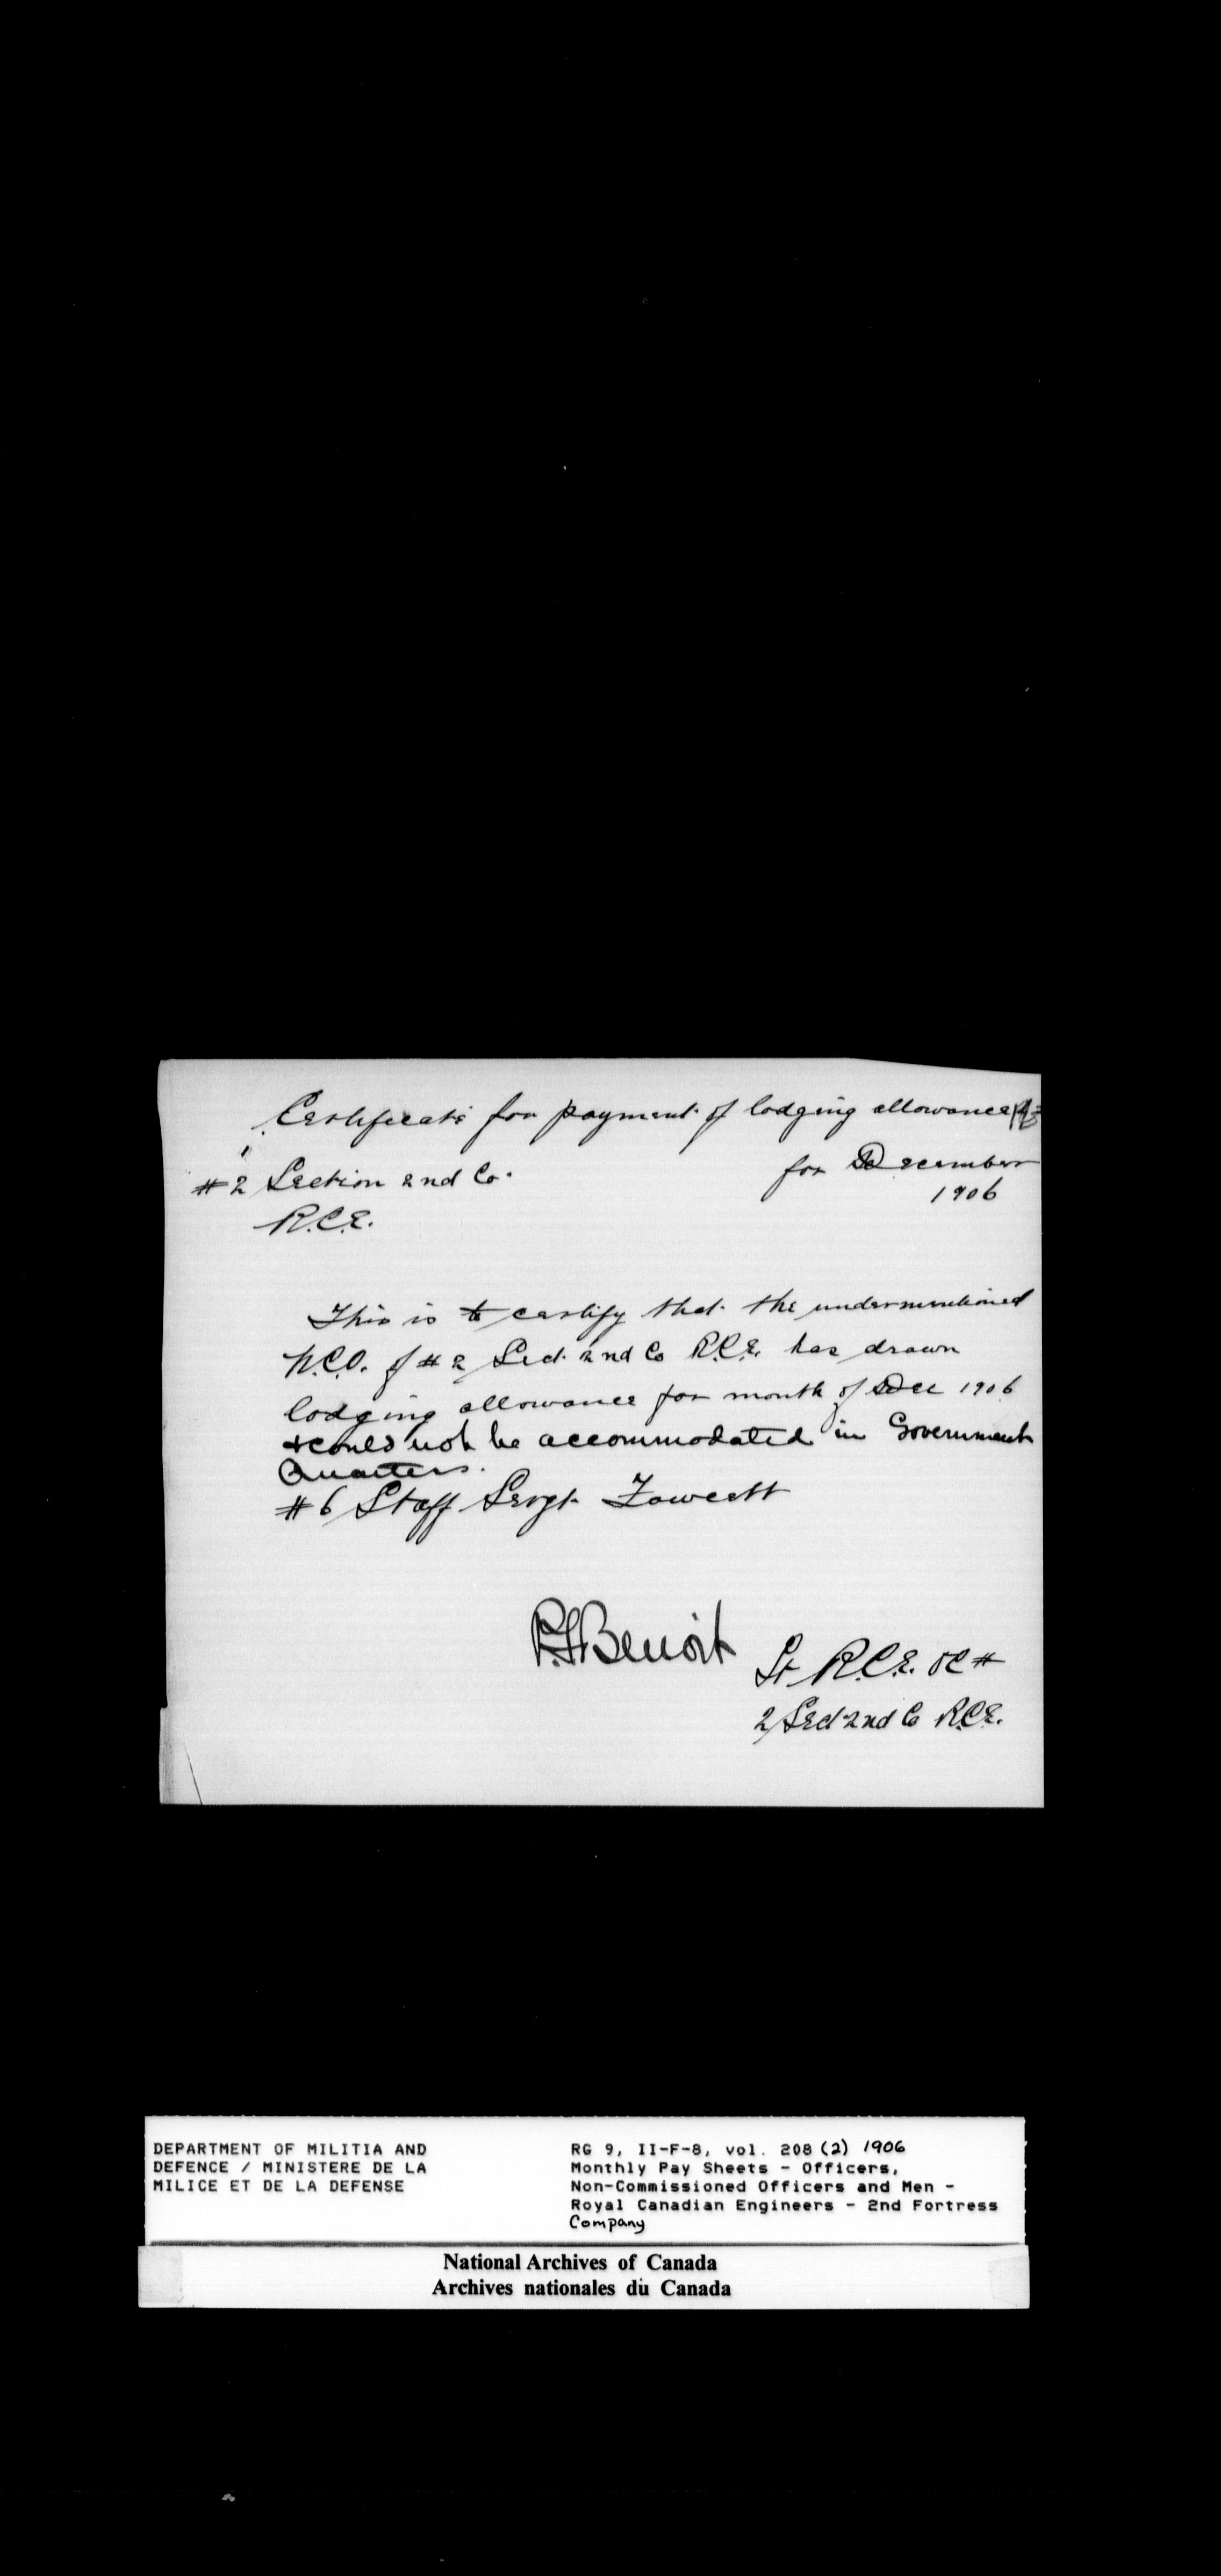 Certificate for payment of lodging allowance
for December
1906
#2 Section 2nd Co.
R.C.E.
This is to certify that the undermentioned
N.C.O. of #2 Sect 2nd Co R.C.E. has drawn
lodging allowance for month of Dec 1906
& could not be accommodated in Government
Quarters.
#6 Staff Sergt Fawcett
Benoit
Lt R.C.E. OC #
2 Sect 2nd Co R.C.E.
DEPARTMENT OF MILITIA AND
DEFENCE / MINISTERE DE LA
MILICE ET DE LA DEFENSE
RG 9, II-F-8, vol. 208 (2) 1906
Monthly Pay Sheets - Officers,
Non-Commissioned Officers and Men -
Royal Canadian Engineers - 2nd Fortress
Company
National Archives of Canada
Archives nationales du Canada